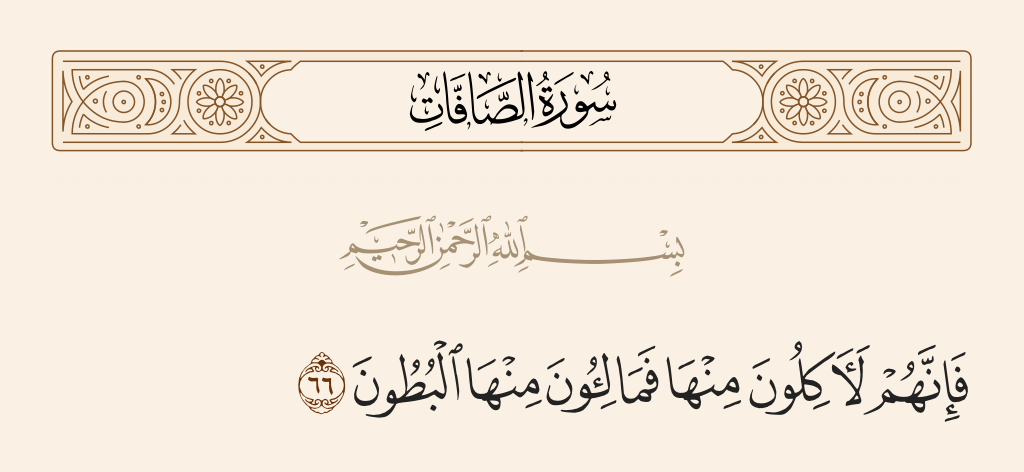 سُورَةُ الصَّافَّاتِ
بِسْمِ ٱللَّهِ ٱلرَّحْمَٰنِ ٱلرَّحِيمِ
فَإِنَّهُمْ لَـَٔاكِلُونَ مِنْهَا فَمَالِـُٔونَ مِنْهَا ٱلْبُطُونَ ٦٦